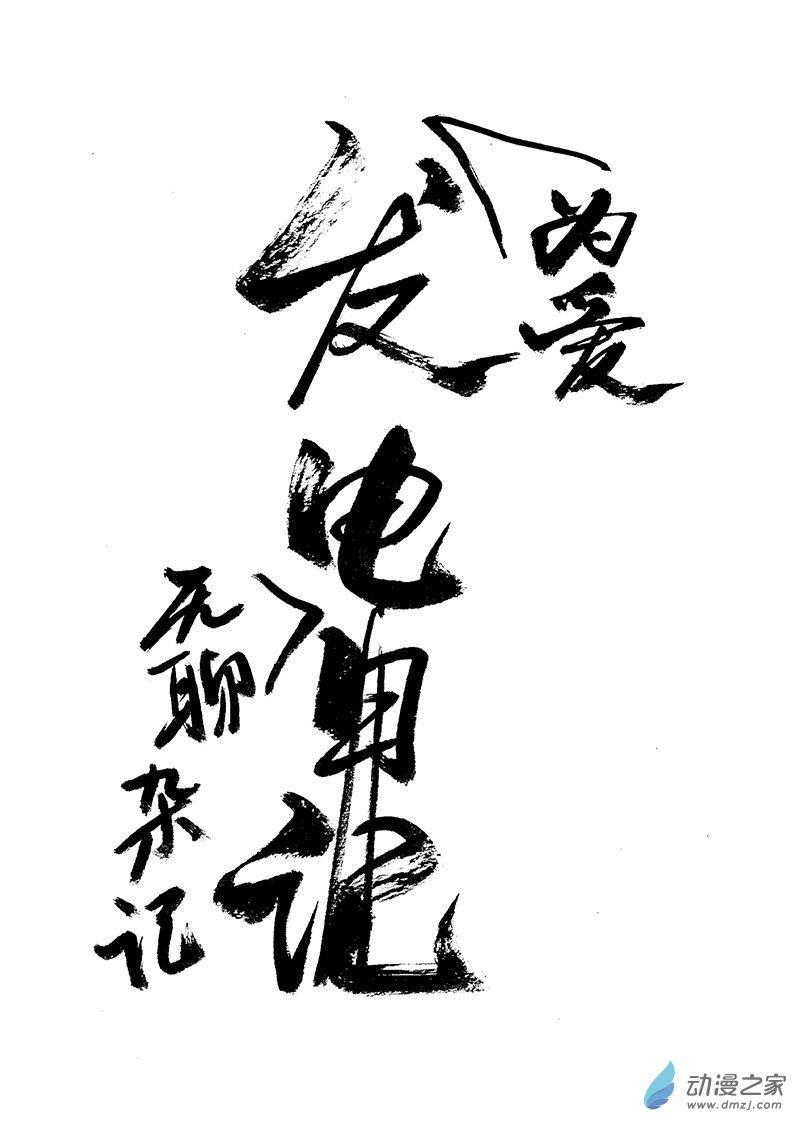 为爱
发电日记
无聊杂记
动漫之家
www.dmzj.com